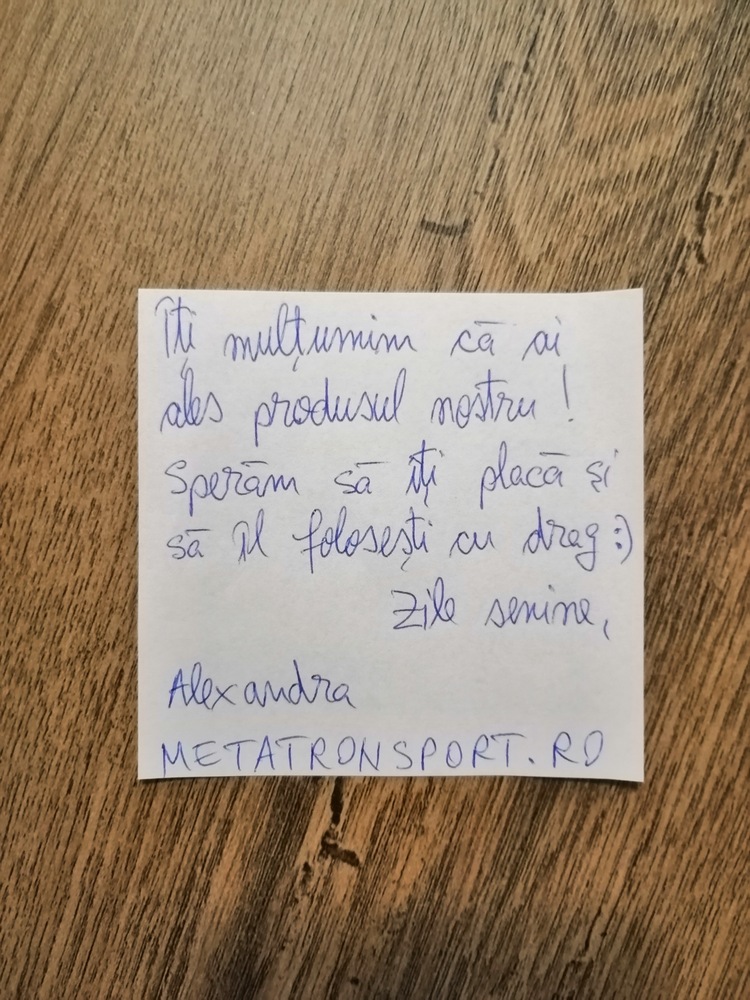 Îți mulțumim că ai
ales produsul nostru!
Sperăm să îți placă și
să îl folosești cu drag :)
Zile senine,
Alexandra
METATRONSPORT.RO